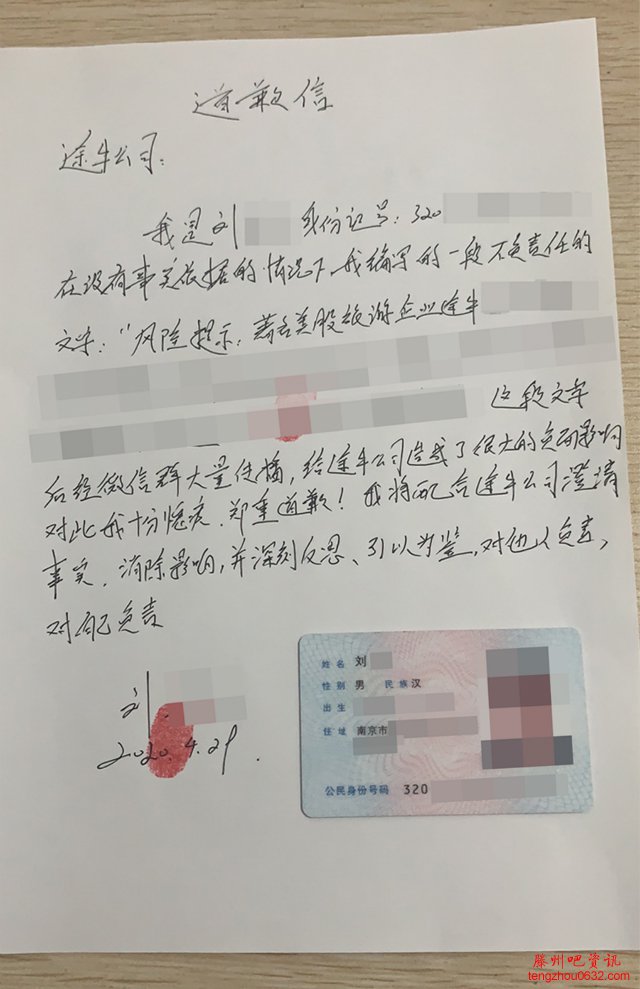 道歉信
途牛公司：
我是刘 身份证号：320
在没有事实依据的情况下，我编写的一段不负责任的
文字："风险提示：著名美股旅游企业途牛
这段文字
后经微信群大量传播，给途牛公司造成了很大的负面影响
对此我十分愧疚，郑重道歉！我将配合途牛公司澄清
事实，消除影响，并深刻反思、引以为鉴，对他人负责，
对自己负责
刘
2020.4.29.
姓名 刘
性别 男 民族 汉
出生
住址 南京市
公民身份号码 320
滕州吧资讯
tengzhou0632.com